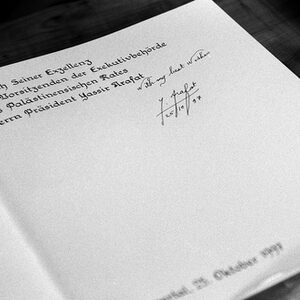 h Seiner Exzellenz
Vorsitzenden der Exekutivbehörde
s Palästinensischen Rates
errn Präsident Yassir Arafat
With my best Wishes
Y. Arafat
25/10/97
25. Oktober 1997